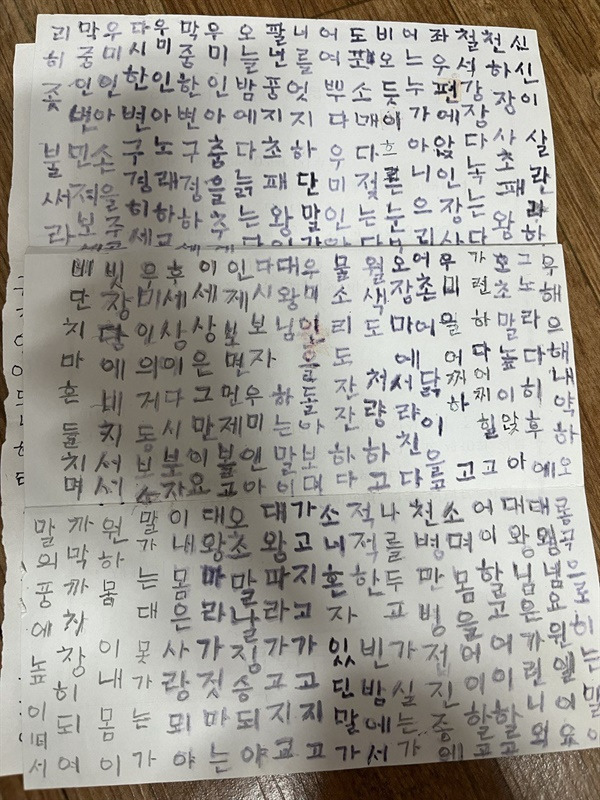 신신이살란하
천하장사초패왕
철석강장다녹는다
좌우편에앉인장사
어느누가아니으리
비오듯이흐른눈
도포소매다젖는다
어여뿌다우미인
니를엇지하단말인
팔년풍지초패왕
오늘밤에다늙는다
우미인아충을추
막중한변구정하세
우미인아노래하
다시한변구경히세
우미인아손을주
막중인변민저보세
리히꽃불써라
우해으해내약하오
그노라다히후에
호초말높이앉아
가련하다어째힐고
우미을어찌하고
어촌에닭이을
오장마에서라친다
월색도처량하고
물소리도잔잔하다
우미인을돌아보니
대왕님하는말이
다시보자우미인아
인제보면언제볼고
이세상은그만이요
후세상이다시분자
우미인의거동보소
빗창당에비치서서
비단치마흔들치며
롱곡으로히는말이
대왕님요원엘어요
대왕님은까린니외
어이할고어이할고
소며몸을어이할고
천병만병접진중에
나를두고가실는가
적적한빈밤에서
소네혼자있단말가
가고지고가고지고
대왕따라가고지고
오초말날짐승되야
대왕마라가것마는
이내몸은사랑되야
말가는대못가는가
원하몸이내몸이
까막까차창히되여
말의풍에높이떠서